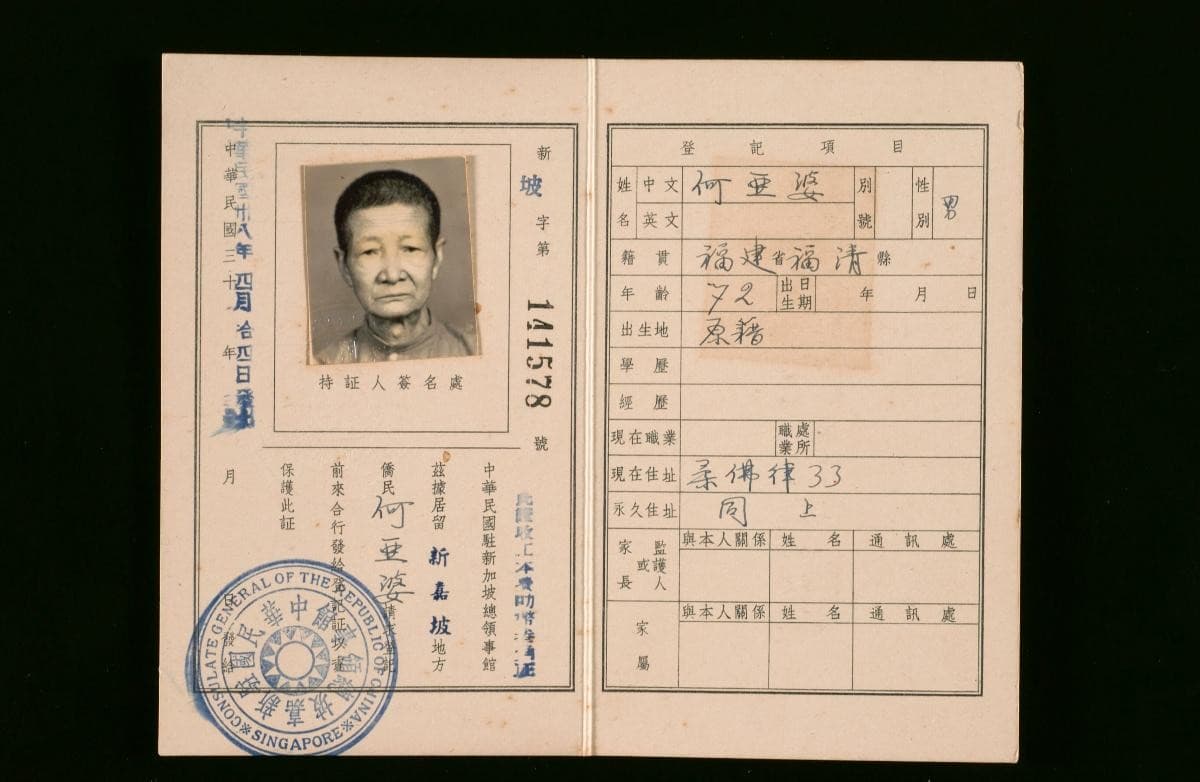 新坡字第141578號
持証人簽名處
中華民國駐新加坡總領事館
茲據居留新嘉坡地方
僑民何亞婆請求登記
前來合行發給登記証以資
保護此証
中華民國三十 年 月 日發給
中華民國卅八年四月拾四日
CONSULATE GENERAL OF THE REPUBLIC OF CHINA
SINGAPORE
登記項目
姓名 中文 何亞婆 別號 性別 男
英文
籍貫 福建省福清縣
年齡 72 出生日期 年 月 日
出生地 原籍
學歷
經歷
現在職業 職業處所
現在住址 柔佛律33
永久住址 同上
家長或監護人 與本人關係 姓名 通訊處
家屬 與本人關係 姓名 通訊處